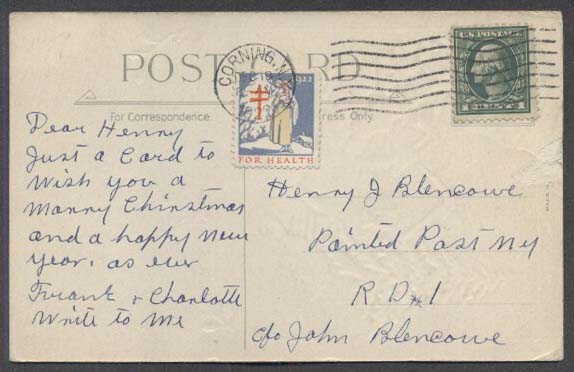 POST CARD
For Correspondence
ress Only.
CORNING, N.
1922
FOR HEALTH
U.S. POSTAGE
1 CENT 1
Dear Henry
Just a Card to
Wish you a
Manry Chirstmas
and a happy New
year. as ever
Frank & Charlotte
Write to Me
Henry J Blencowe
Painted Post NY
R D #1
c/o John Blencowe